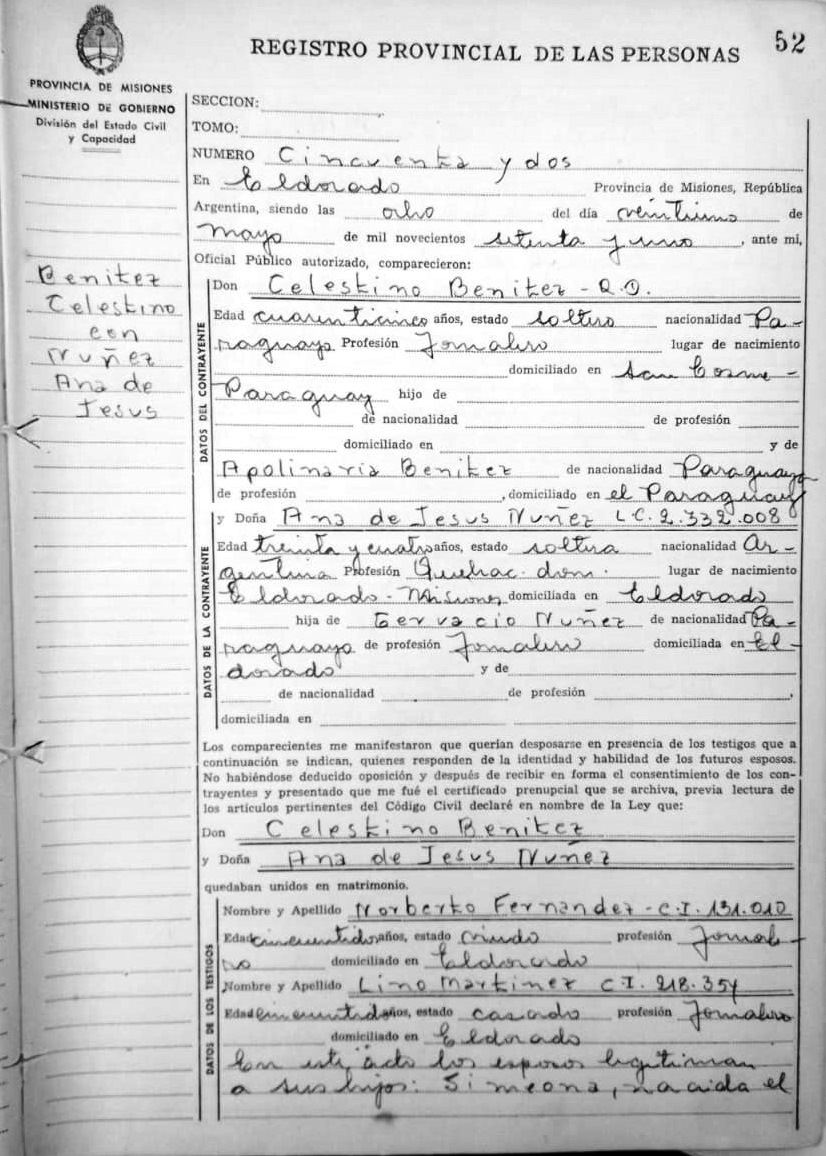 52
REGISTRO PROVINCIAL DE LAS PERSONAS
PROVINCIA DE MISIONES
MINISTERIO DE GOBIERNO
División del Estado Civil
y Capacidad
Benitez
Celestino
con
Nuñez
Ana de
Jesus
SECCION:
TOMO:
NUMERO Cincuenta y dos
En Eldorado Provincia de Misiones, República
Argentina, siendo las ocho del día veintiuno de
mayo de mil novecientos setenta y uno, ante mi,
Oficial Público autorizado, comparecieron:
DATOS DEL CONTRAYENTE
Don Celestino Benitez -
Edad cuarenticinco años, estado soltero nacionalidad Pa-
raguaya Profesión Jornalero lugar de nacimiento
domiciliado en San Cosme -
Paraguay hijo de
de nacionalidad de profesión
domiciliado en y de
Apolinaria Benitez de nacionalidad Paraguaya
de profesión , domiciliado en el Paraguay
DATOS DE LA CONTRAYENTE
y Doña Ana de Jesus Nuñez L.C. 2.332.008
Edad treinta y cuatro años, estado soltera nacionalidad Ar-
gentina Profesión Quehac. dom. lugar de nacimiento
Eldorado - Misiones domiciliada en Eldorado
hija de Gervacio Nuñez de nacionalidad Pa-
raguaya de profesión Jornalero domiciliada en El-
dorado y de
de nacionalidad de profesión ,
domiciliada en
Los comparecientes me manifestaron que querían desposarse en presencia de los testigos que a
continuación se indican, quienes responden de la identidad y habilidad de los futuros esposos.
No habiéndose deducido oposición y después de recibir en forma el consentimiento de los con-
trayentes y presentado que me fué el certificado prenupcial que se archiva, previa lectura de
los artículos pertinentes del Código Civil declaré en nombre de la Ley que:
Don Celestino Benitez
y Doña Ana de Jesus Nuñez
quedaban unidos en matrimonio.
DATOS DE LOS TESTIGOS
Nombre y Apellido Norberto Fernandez - C.I. 131.010
Edad cincuentidos años, estado viudo profesión Jornale-
ro domiciliado en Eldorado
Nombre y Apellido Lino Martinez C.I. 218.354
Edad cincuentidos años, estado casado profesión Jornalero
domiciliado en Eldorado
Con este acto los esposos legitiman
a sus hijos: Simeona, nacida el